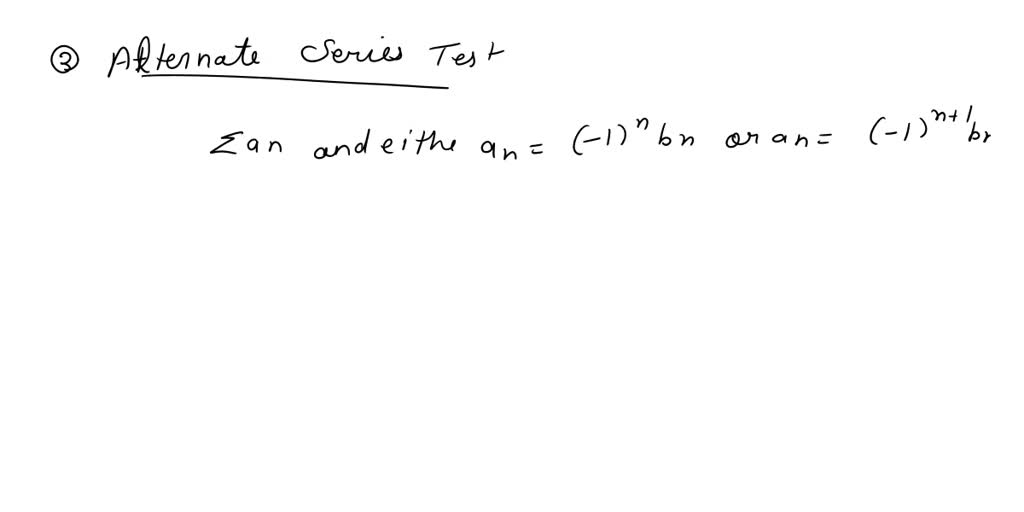 ③ Alternate Series Test
Σan and eithe an = (-1)^n bn or an = (-1)^{n+1} bn